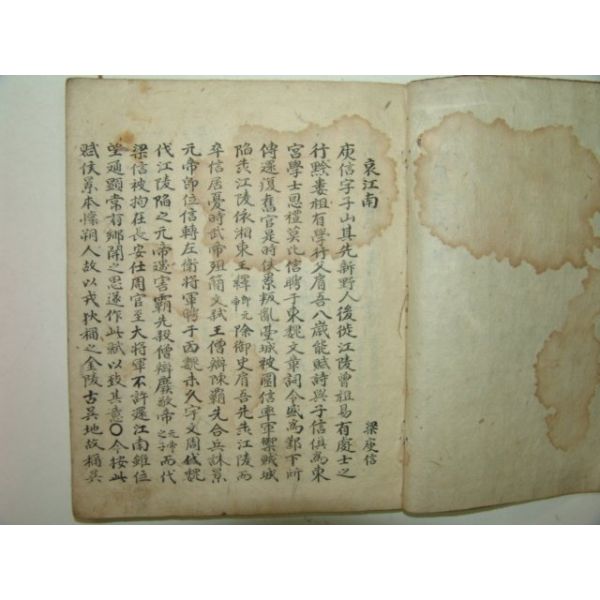 哀江南
梁庾信
庾信字子山其先新野人後徙江陵曾祖易有處士之
行黔婁祖有學行父肩吾八歲能賦詩與子信俱爲東
宮學士恩禮莫比信聘于東魏文章詞令盛爲鄴下所
傳還復舊官是時侯景叛亂臺城被圍信率軍禦賊城
陷奔江陵依湘東王繹卽元帝除御史肩吾先奔江陵而
卒信居憂時武帝殂簡文弑王僧辯陳霸先合兵誅景
元帝卽位信轉左衛將軍聘于西魏未久宇文周伐魏
代江陵陷之元帝遇害霸先殺僧辯廢敬帝元帝之子而代
梁信被拘在長安仕周官至大將軍不許還江南雖位
望通顯常有鄉關之思遂作此賦以致其意〇今按此
賦侯景本懷朔人故以戎狄稱之金陵古吳地故稱吳